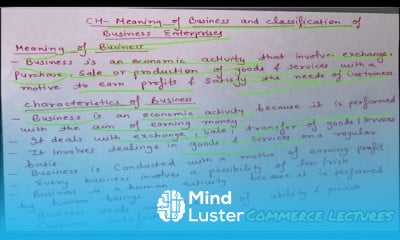 CH- Meaning of Business and classification of
Business Enterprises
Meaning of Business
- Business is an economic activity that involve exchange,
purchase, sale or production of goods & services with a
motive to earn profits & satisfy the needs of customers
characteristics of Business
- Business is an economic activity because it is performed
with the aim of earning money.
- It deals with exchange, sale, transfer of goods/services
- It involves dealings in goods & services on a regular
basis
- Business is conducted with a motive of earning profit.
- Every business involves a possibility of loss/risk
- Business is a human activity because it is performed
by human beings
Business deals utility & provide
Mind
Luster
COMMERCE LECTURES